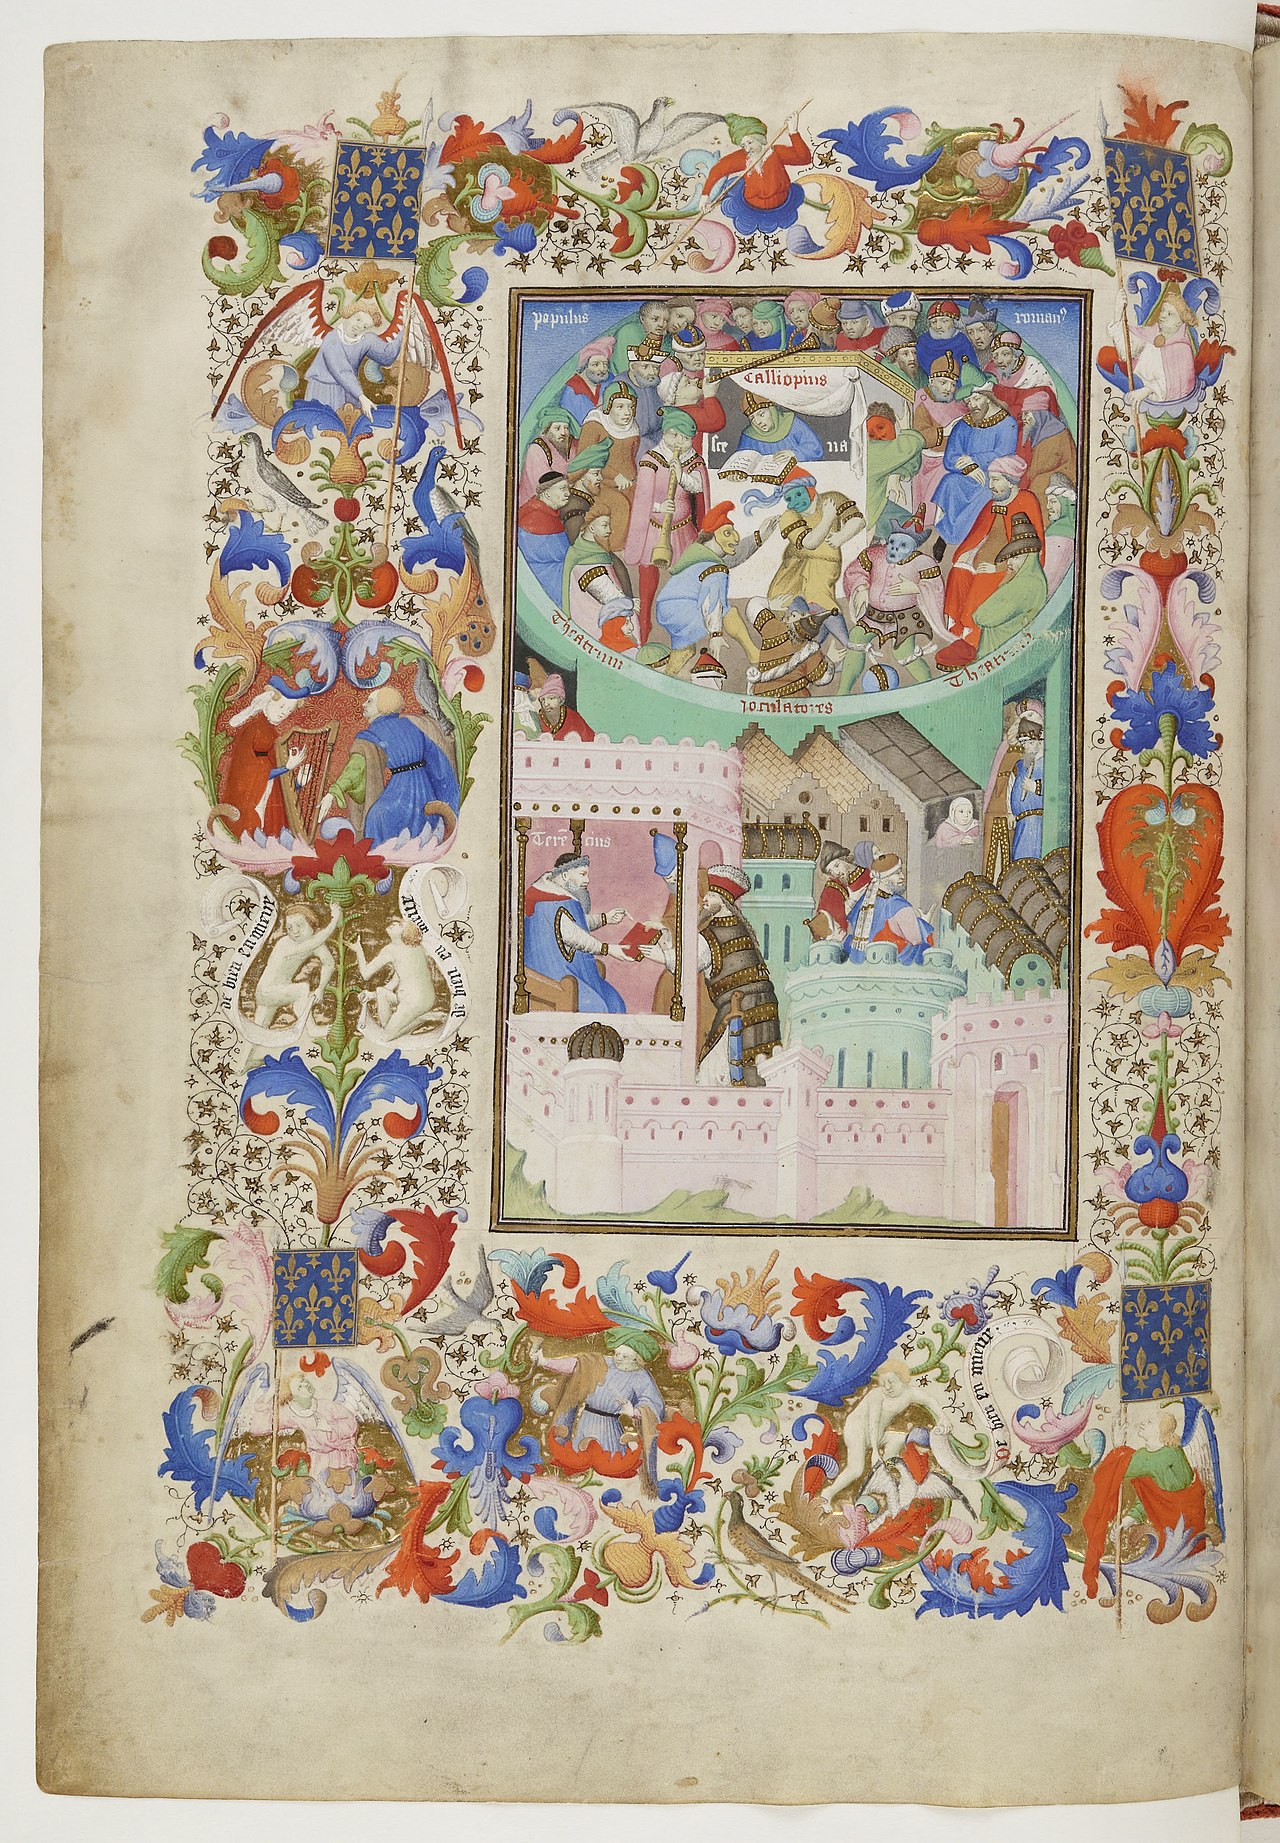 populus
romanꝰ
Calliopius
sce
na
Theatrum
Theatrum
Joculatores
Tere͂
cius
de bien en mieux
de bien en mieux
de bien en mieux